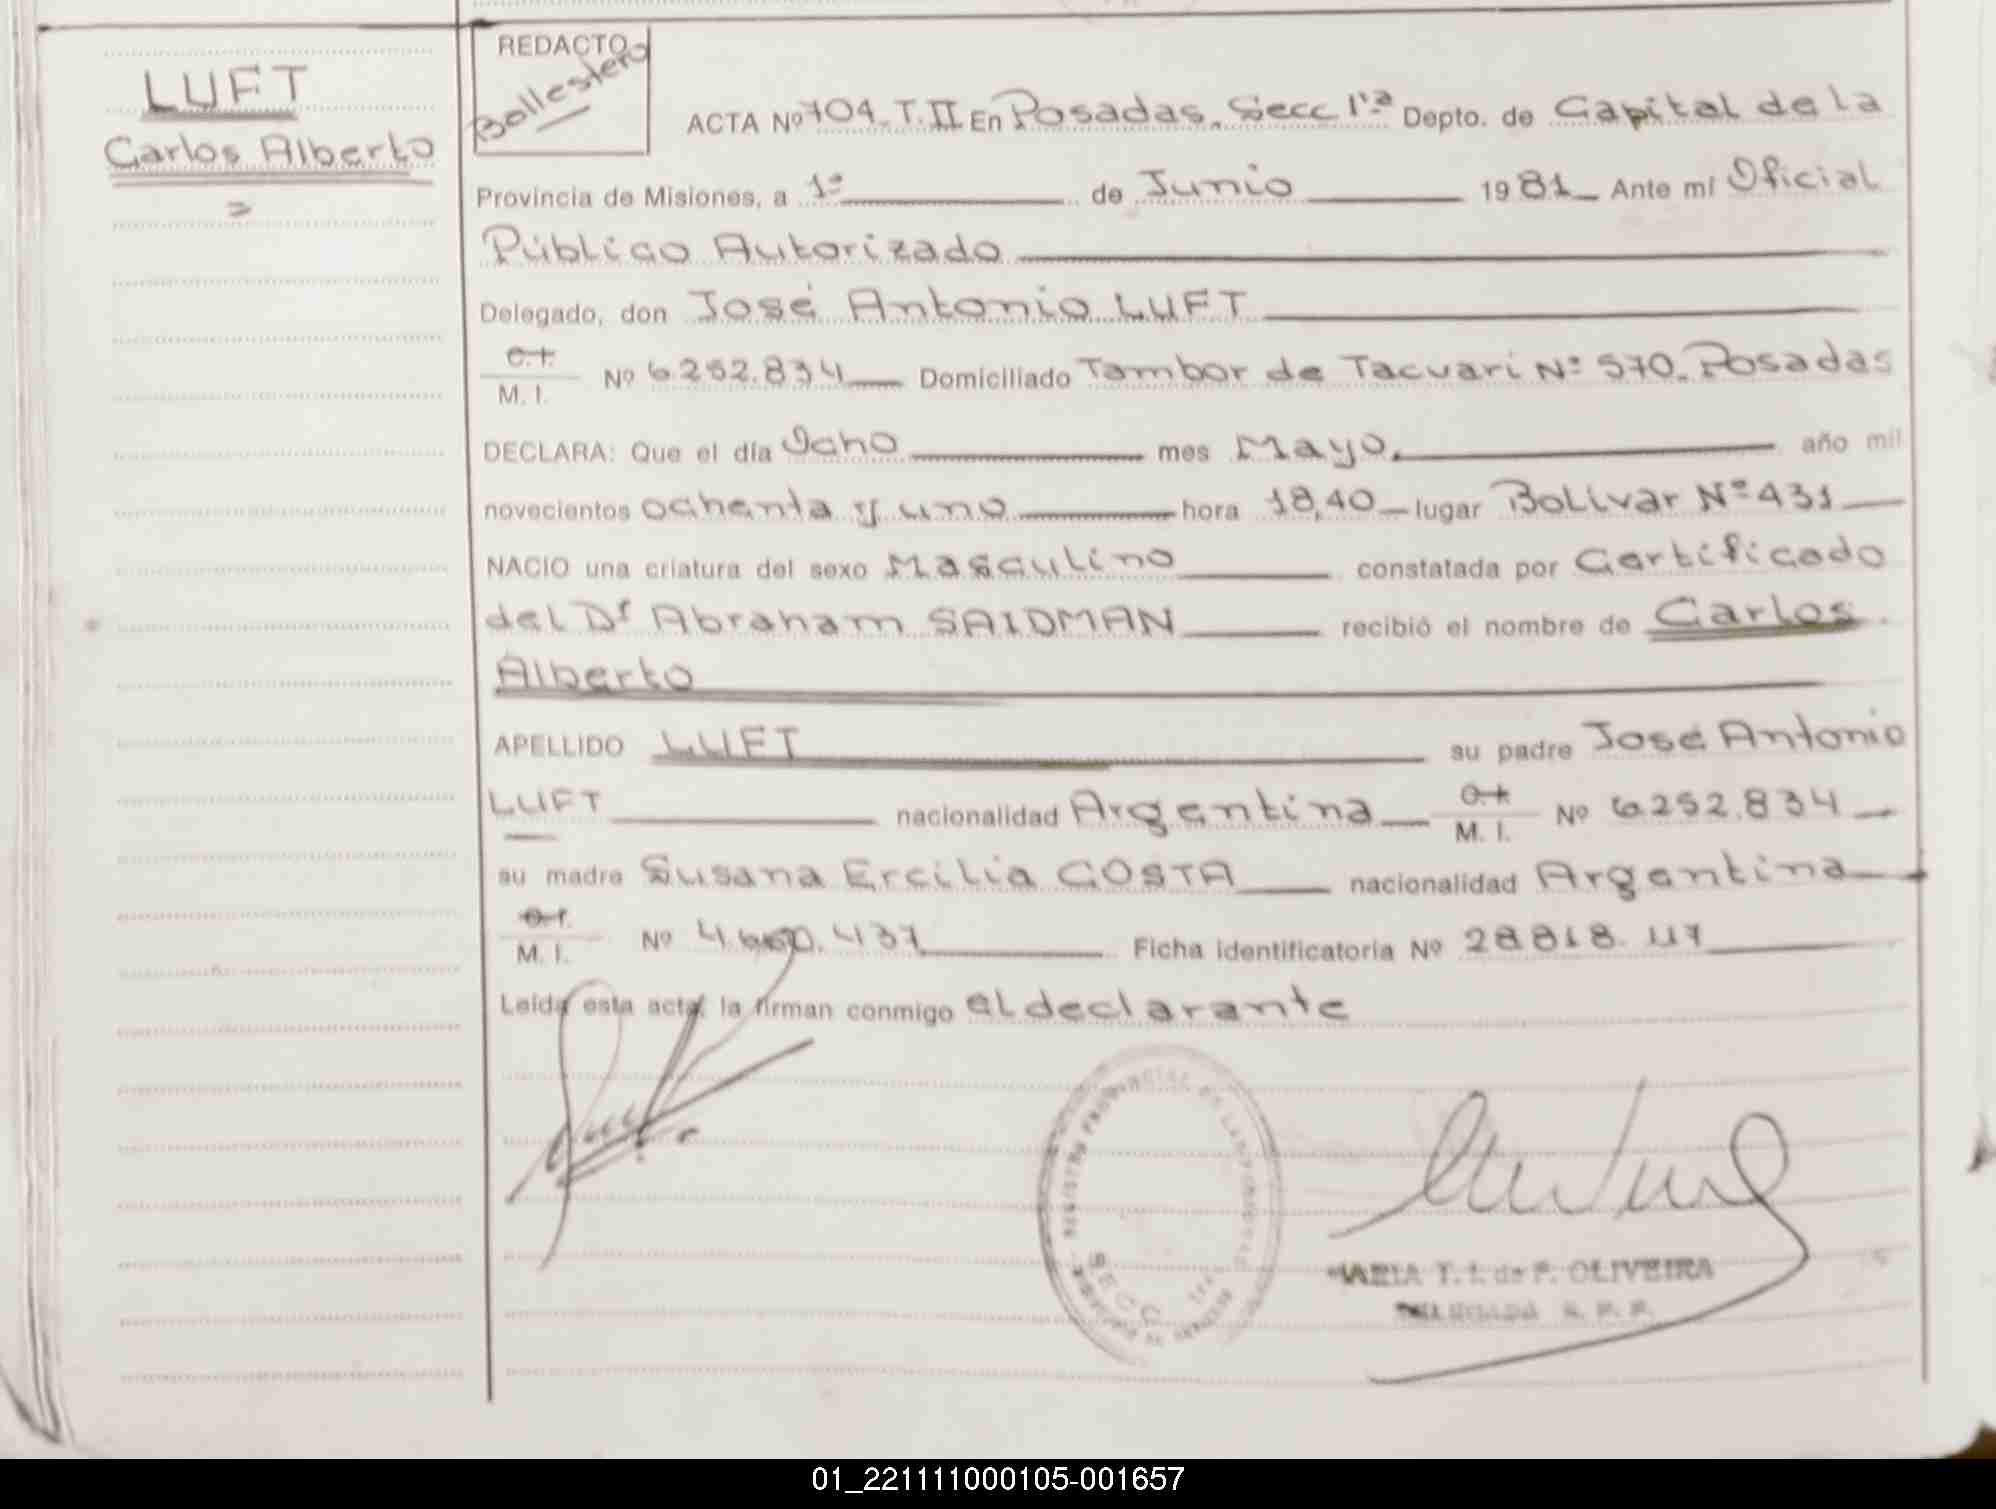 LUFT
Carlos Alberto
REDACTO
Ballestero
ACTA Nº 704 T. II En Posadas. Secc 1ra Depto. de Capital de la
Provincia de Misiones, a 1º de Junio 1981 Ante mí Oficial
Público Autorizado
Delegado, don José Antonio LUFT
C.I.
M. I. Nº 6.252.834 Domiciliado Tambor de Tacuarí Nº 570. Posadas
DECLARA: Que el día Ocho mes Mayo. año mil
novecientos ochenta y uno hora 18,40 lugar Bolívar Nº 431
NACIO una criatura del sexo Masculino constatada por Certificado
del Dr Abraham SAIDMAN recibió el nombre de Carlos
Alberto
APELLIDO LUFT su padre José Antonio
LUFT nacionalidad Argentina C.I. M. I. Nº 6.252.834
su madre Susana Ercilia COSTA nacionalidad Argentina
C.I.
M. I. Nº 437 Ficha identificatoria Nº 28818.117
Leída esta acta, la firman conmigo el declarante
REGISTRO PROVINCIAL DE LAS PERSONAS
SECC
MARIA T. I. de F. OLIVEIRA
DELEGADA R. P. P.
01_221111000105-001657